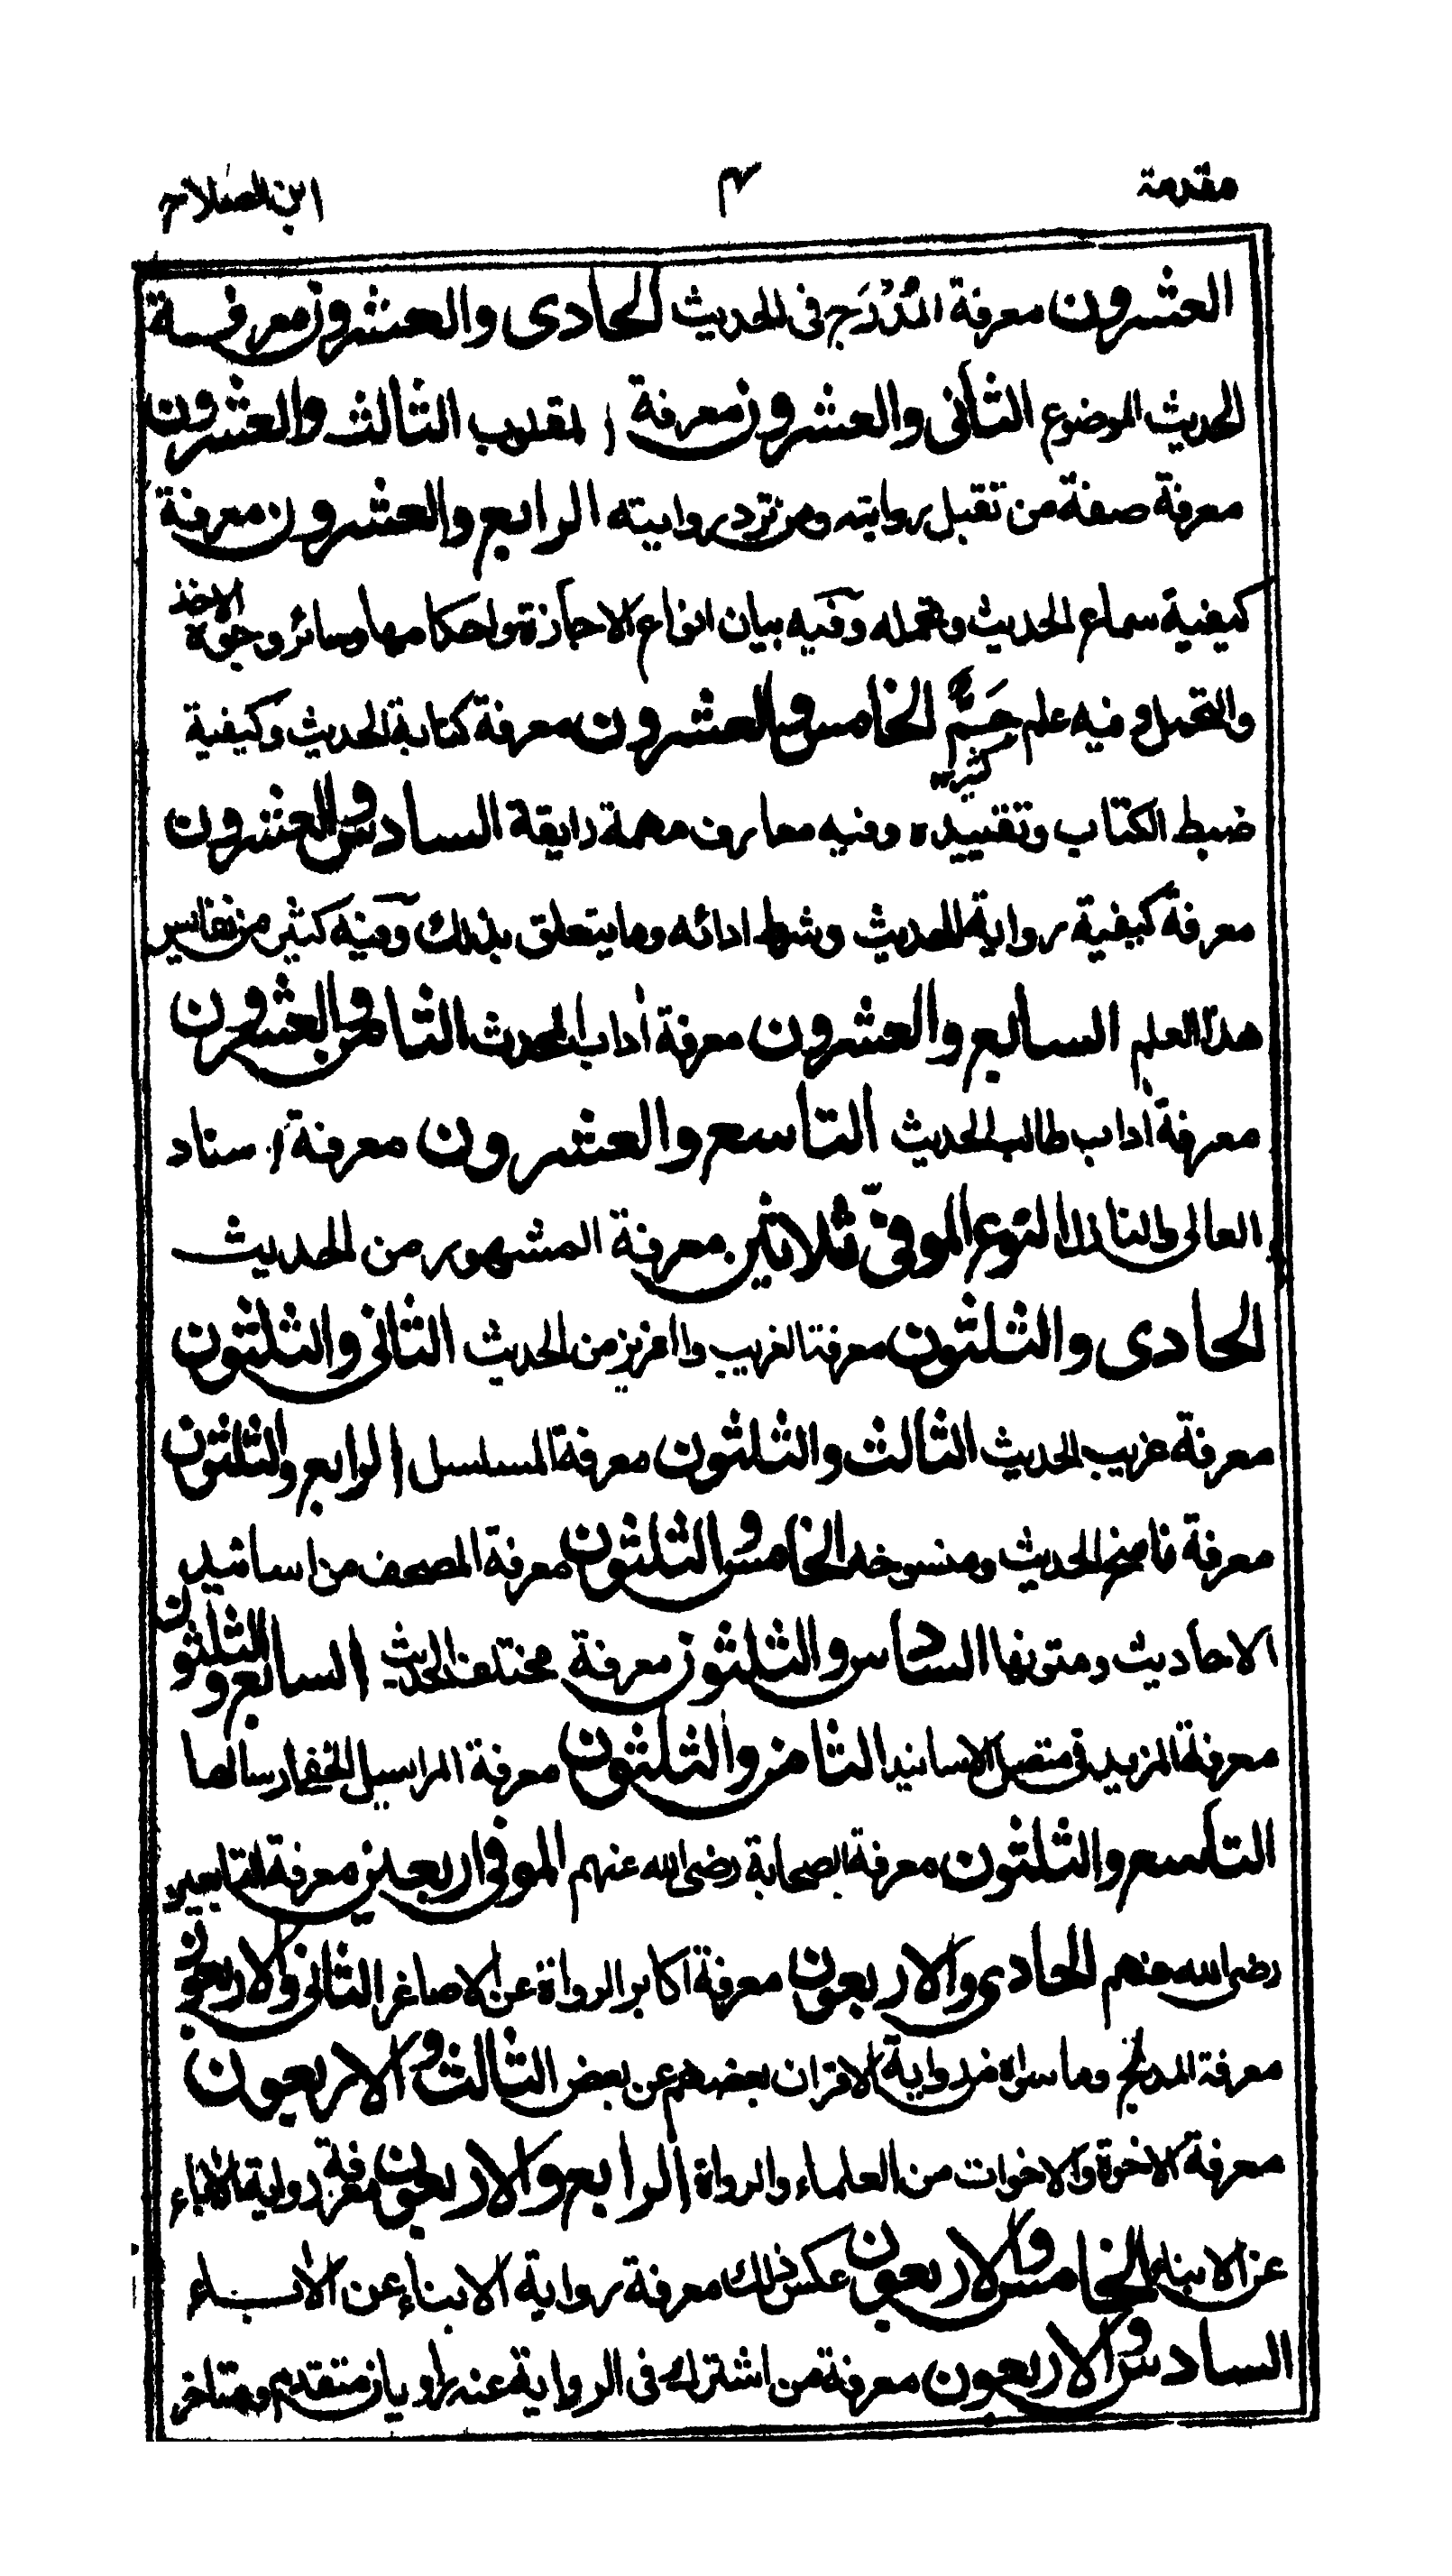 مقدمة ٣ ابن الصلاح
العشرون معرفة المُدْرَج فى الحديث الحادى والعشرون معرفة
الحديث الموضوع الثانى والعشرون معرفة المقلوب الثالث والعشرون
معرفة صفة من تقبل روايته ومن ترد روايته الرابع والعشرون معرفة
كيفية سماع الحديث وتحمله وفيه بيان انواع الاجازة واحكامها وسائر وجوه الاخذ
والتحمل وفيه علم جَمٌّ كثير الخامس والعشرون معرفة كتابة الحديث وكيفية
ضبط الكتاب وتقييده وفيه معارف مهمة رايقة السادس والعشرون
معرفة كيفية رواية الحديث وشرط ادائه وما يتعلق بذلك وفيه كثير من نفائس
هذا العلم السابع والعشرون معرفة اداب المحدث الثامن والعشرون
معرفة اداب طالب الحديث التاسع والعشرون معرفة الاسناد
العالى والنازل النوع الموفىّ ثلاثين معرفة المشهور من الحديث
الحادى والثلثون معرفة الغريب والعزيز من الحديث الثانى والثلثون
معرفة غريب الحديث الثالث والثلثون معرفة المسلسل الرابع والثلثون
معرفة ناسخ الحديث ومنسوخه الخامس والثلثون معرفة المصحف من اسانيد
الاحاديث ومتونها السادس والثلثون معرفة مختلف الحديث السابع والثلثون
معرفة المزيد فى متصل الاسانيد الثامن والثلثون معرفة المراسيل الخفى ارسالها
التاسع والثلثون معرفة الصحابة رضى الله عنهم الموفى اربعين معرفة التابعين
رضى الله عنهم الحادى والاربعون معرفة اكابر الرواة عن الاصاغر الثانى والاربعون
معرفة المدبج وما سواه من رواية الاقران بعضهم عن بعض الثالث والاربعون
معرفة الاخوة والاخوات من العلماء والرواة الرابع والاربعون معرفة رواية الاباء
عن الابناء الخامس والاربعون عكس ذلك معرفة رواية الابناء عن الاباء
السادس والاربعون معرفة من اشترك فى الرواية عنه راويان متقدم ومتاخر